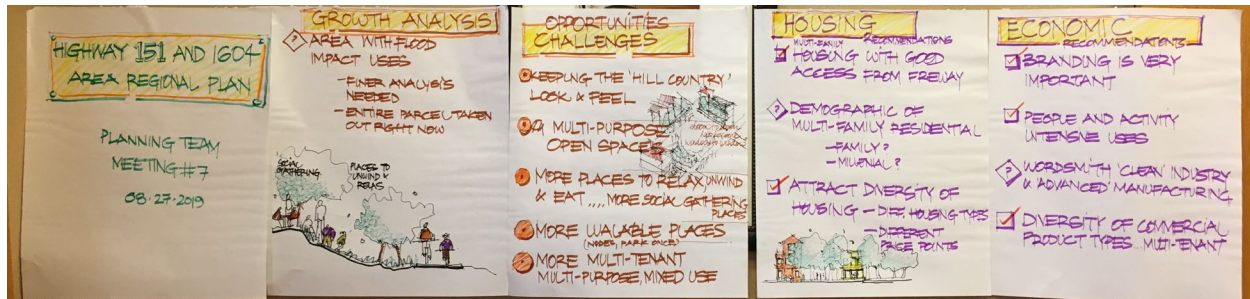 HIGHWAY 151 AND 1604
AREA REGIONAL PLAN
PLANNING TEAM
MEETING #7
08·27·2019
GROWTH ANALYSIS
? AREA WITH FLOOD
IMPACT USES
- FINER ANALYSIS
NEEDED
- ENTIRE PARCEL TAKEN
OUT RIGHT NOW
SOCIAL
GATHERING
PLACES TO
UNWIND &
RELAX
OPPORTUNITIES
CHALLENGES
KEEPING THE 'HILL COUNTRY'
LOOK & FEEL
MULTI-PURPOSE
OPEN SPACES
MORE PLACES TO RELAX UNWIND
& EAT .... MORE SOCIAL GATHERING
PLACES
MORE WALABLE PLACES
(NODES, PARK ONCE)
MORE MULTI-TENANT
MULTI-PURPOSE, MIXED USE
HOUSING
RECOMMENDATIONS
MULTI-FAMILY
HOUSING WITH GOOD
ACCESS FROM FREWAY
? DEMOGRAPHIC OF
MULTI-FAMILY RESIDENTIAL
- FAMILY?
- MILLENIAL?
ATTRACT DIVERSITY OF
HOUSING - DIFF. HOUSING TYPES
- DIFFERENT
PRICE POINTS
ECONOMIC
RECOMMENDATIONS
BRANDING IS VERY
IMPORTANT
PEOPLE AND ACTIVITY
INTENSIVE USES
? WORDSMITH 'CLEAN' INDUSTRY
& 'ADVANCED' MANUFACTURING
DIVERSITY OF COMMERCIAL
PRODUCT TYPES... MULTI-TENANT